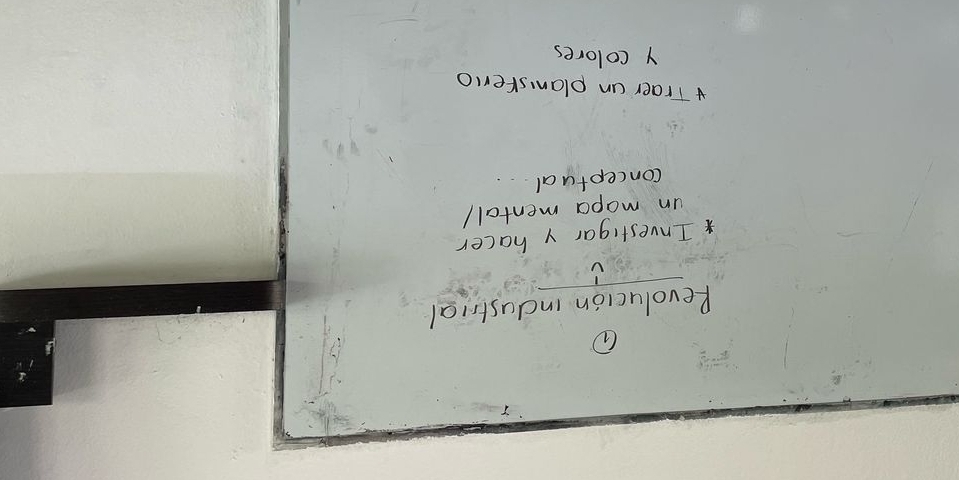 ①
Revolución industrial
* Investigar y hacer
un mapa mental/
conceptual...
* Traer un planisferio
y colores